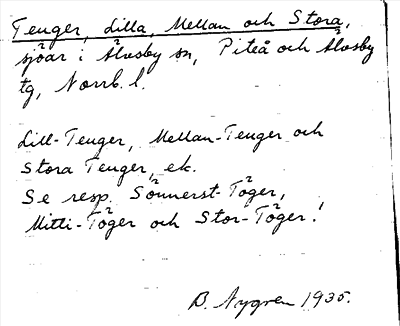 Tenger, Lilla, Mellan och Stora,
sjöar i Älvsby sn, Piteå och Älvsby
tg, Norrb. l.
Lill-Tenger, Mellan-Tenger och
Stora Tenger, ek.
Se resp. Sönnerst-Töger,
Mitti-Töger och Stor-Töger!
B. Nygren 1935.